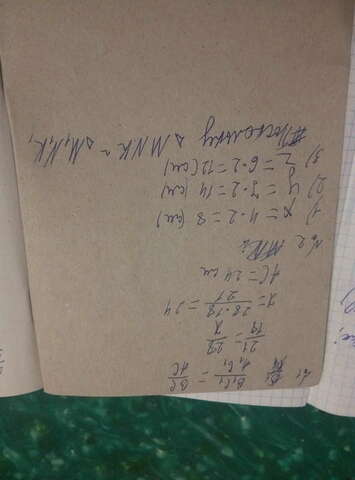 №1 B₁C₁/A₁C₁ = BC/AC
21/18 = 28/x
x = 28·18/21 = 24
AC = 24 см
№2
1) x = 4·2 = 8 (см)
2) y = 7·2 = 14 (см)
3) z = 6·2 = 12 (см)
Поскольку △ MNK ~ △M₁N₁K₁